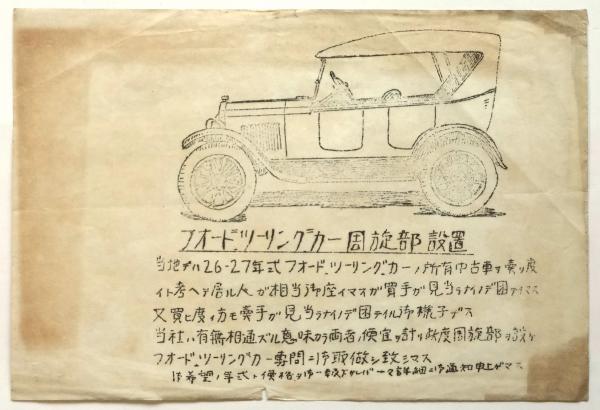 フオード、ツーリングカー周旋部設置
当地デハ26-27年式フオード、ツーリング、カーノ所有中古車ヲ売リ度
イト考ヘデ居ル人ガ相当御座イマスガ買手ガ見当ラナイノデ困ツテイマス
又買ヒ度イ方モ売手ガ見当ラナイノデ困テイル御様子デス
当社ハ有無相通ズル意味カラ両者ノ便宜ヲ計リ此度周旋部ヲ設ケ
フオード、ツーリングカー専門ニ御取做シ致シマス
御希望ノ年式ト価格ヲ御一報下サレバ詳細ニ御通知申上ゲマス